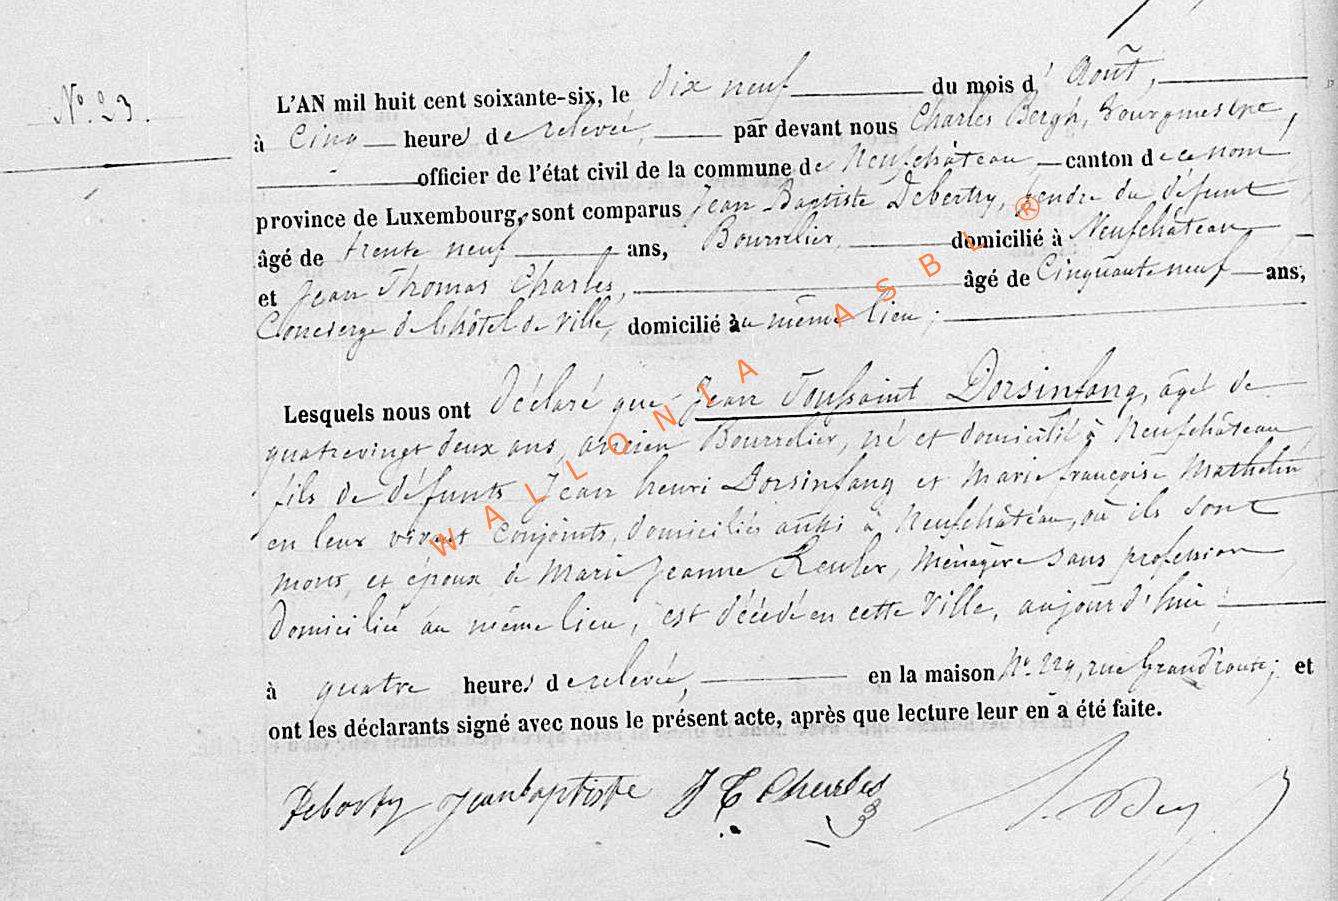 N° 23.
L'AN mil huit cent soixante-six, le dix neuf du mois d' Août,
à Cinq heures de relevée, par devant nous Charles Bergh, Bourgmestre,
officier de l'état civil de la commune de Neufchâteau canton de ce nom
province de Luxembourg, sont comparus Jean Baptiste Deberty, gendre du défunt
âgé de trente neuf ans, Bourrelier, domicilié à Neufchâteau
et Jean Thomas Charles, âgé de Cinquante neuf ans,
Concierge de l'hôtel de Ville, domicilié au même lieu ;
Lesquels nous ont Déclaré que Jean Toussaint Dorsinfang, âgé de
quatrevingt deux ans, ancien Bourrelier, né et domicilié à Neufchâteau
fils de défunts Jean henri Dorsinfang et Marie françoise Mathelin
en leur vivant Conjoints, domiciliés aussi à Neufchâteau, où ils sont
morts, et époux de Marie Jeanne Reuler, Ménagère sans profession
Domiciliée au même lieu, est décédé en cette Ville, aujourd'hui ;
à quatre heures de relevée, en la maison N° 229, rue Grand'route ; et
ont les déclarants signé avec nous le présent acte, après que lecture leur en a été faite.
Deberty Jean baptiste J T Charles
WALLONIA ASBL ®